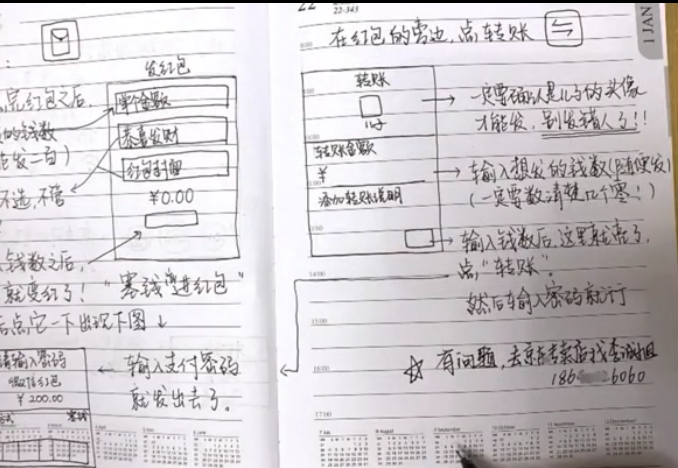 发红包
完红包之后，
单个金额
的钱数
恭喜发财
能发二百）
红包封面
不选，不管
¥0.00
钱数之后，
就变红了！"塞钱进红包"
后点它一下出现下图↓
请输入密码
微信红包
¥200.00
← 输入支付密码
就发出去了。
22
22-343
1 JAN
在红包的旁边，点转账
转账
→ 一定要确认是儿子的头像
才能发，别发错人了！！
儿子
转账金额
¥
→ 输入想发的钱数（随便发）
（一定要数清楚几个零！）
添加转账说明
→ 输入钱数后，这里就亮了，
点"转账"。
然后输入密码就行
14:00
15:00
16:00
☆ 有问题，去京东专卖店找李诚姐
186 6060
17:00